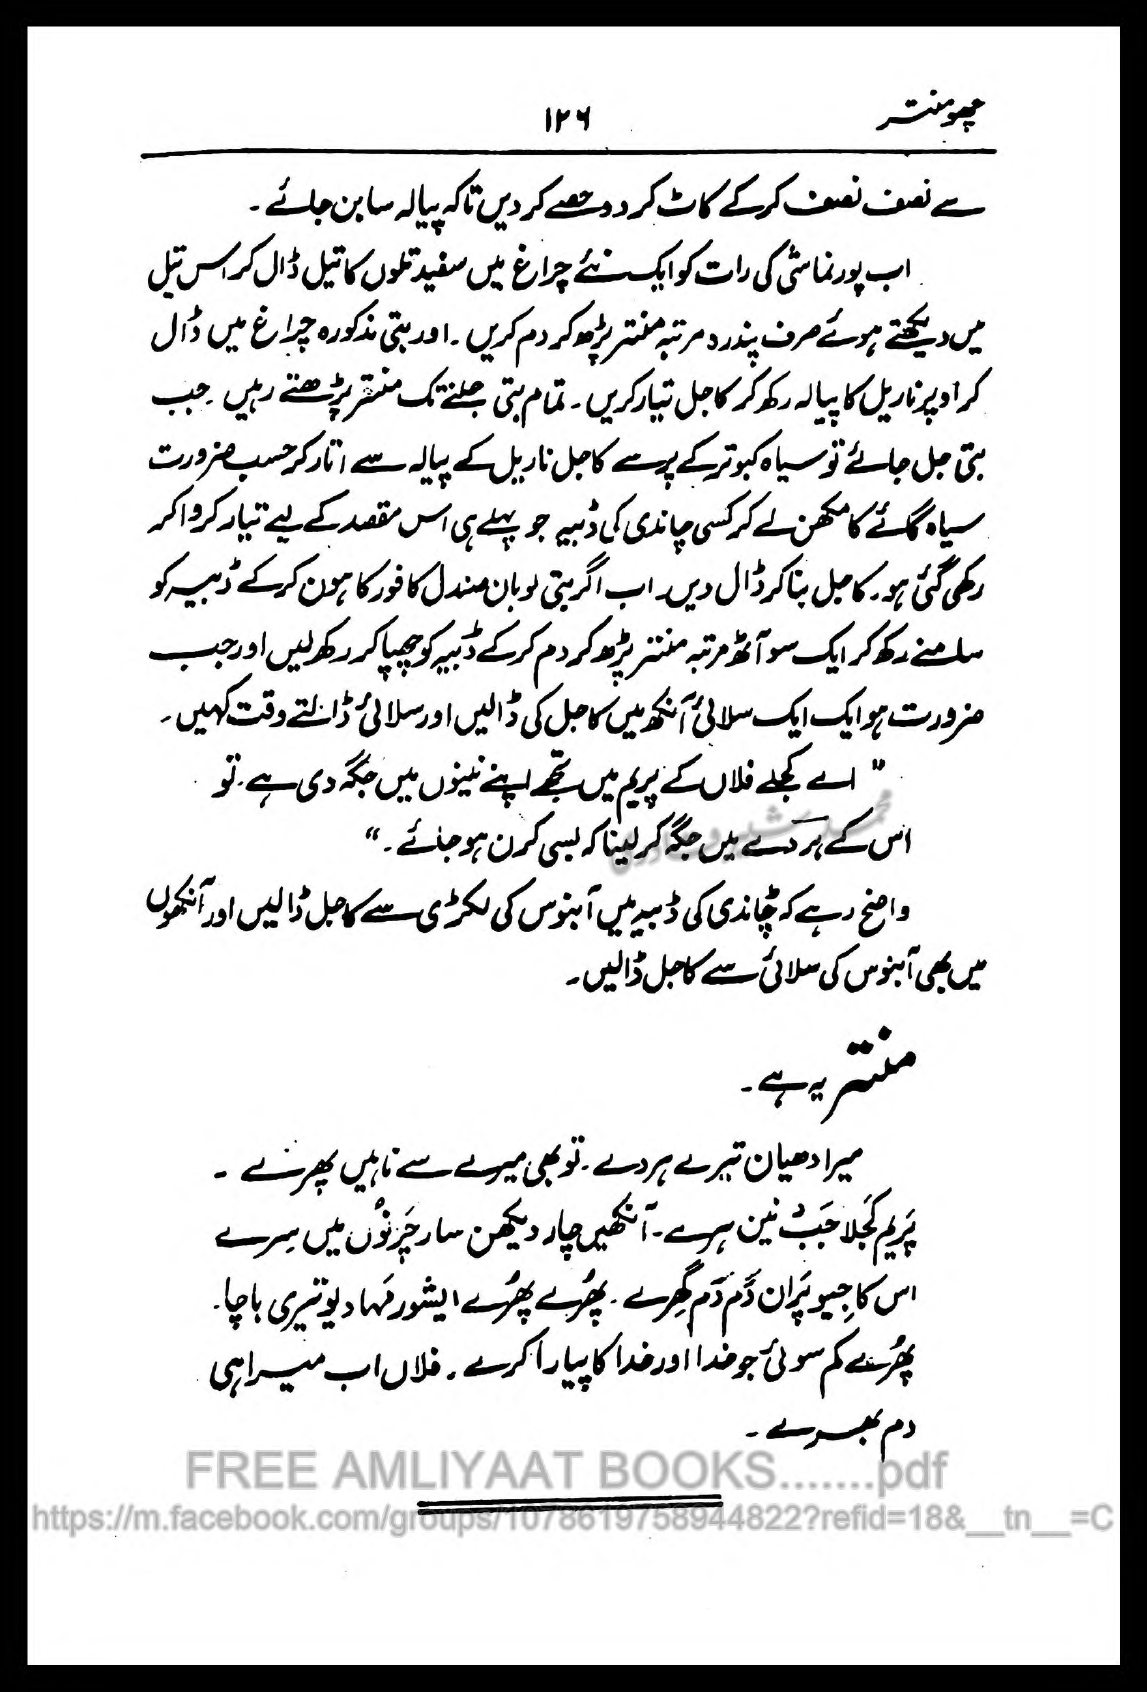 چھومنتر
۱۲۶
سے نصف نصف کرکے کاٹ کر دو حصے کر دیں تاکہ پیالہ سا بن جائے۔
اب پورنماشی کی رات کو ایک نئے چراغ میں سفید تلوں کا تیل ڈال کر اس تیل
میں دیکھتے ہوئے صرف پندرہ مرتبہ منتر پڑھ کر دم کریں۔ اور بتی مذکورہ چراغ میں ڈال
کر اوپر ناریل کا پیالہ رکھ کر کاجل تیار کریں۔ تمام بتی جلنے تک منتر پڑھتے رہیں۔ جب
بتی جل جائے تو سیاہ کبوتر کے پر سے کاجل ناریل کے پیالہ سے اتار کر حسب ضرورت
سیاہ گائے کا مکھن لے کر کسی چاندی کی ڈبیہ جو پہلے ہی اس مقصد کے لیے تیار کروا کر
رکھی گئی ہو۔ کاجل بنا کر ڈال دیں۔ اب اگر بتی لوبان صندل کافور کا ہون کرکے ڈبیہ کو
سامنے رکھ کر ایک سو آٹھ مرتبہ منتر پڑھ کر دم کرکے ڈبیہ کو چھپا کر رکھ لیں اور جب
ضرورت ہو ایک ایک سلائی آنکھ میں کاجل کی ڈالیں اور سلائی ڈالتے وقت کہیں۔
"اے کجلے فلاں کے پریم میں تجھے اپنے نینوں میں جگہ دی ہے۔ تو
اس کے ہردے میں جگہ کر لینا کہ بسی کرن ہو جائے۔"
واضح رہے کہ چاندی کی ڈبیہ میں آبنوس کی لکڑی سے کاجل ڈالیں اور آنکھوں
میں بھی آبنوس کی سلائی سے کاجل ڈالیں۔
منتر یہ ہے۔
میرا دھیان تیرے ہردے۔ تو بھی میرے سے ناہیں پھرنے۔
پَریم کَجَلا جَبْ نین سرے۔ آنکھیں چار دیکھن سار چَرنوں میں سِرے
اس کا جِیو پَران دَم دَم گھِرے۔ پھُرے پھُرے ایشور مَہادیو تیری باچا۔
پھُرے کم سوئی جو خدا اور خدا کا پیارا کرے۔ فلاں اب میرا ہی
دم بھرے۔
FREE AMLIYAAT BOOKS.......pdf
https://m.facebook.com/groups/1078619758944822?refid=18&__tn__=C